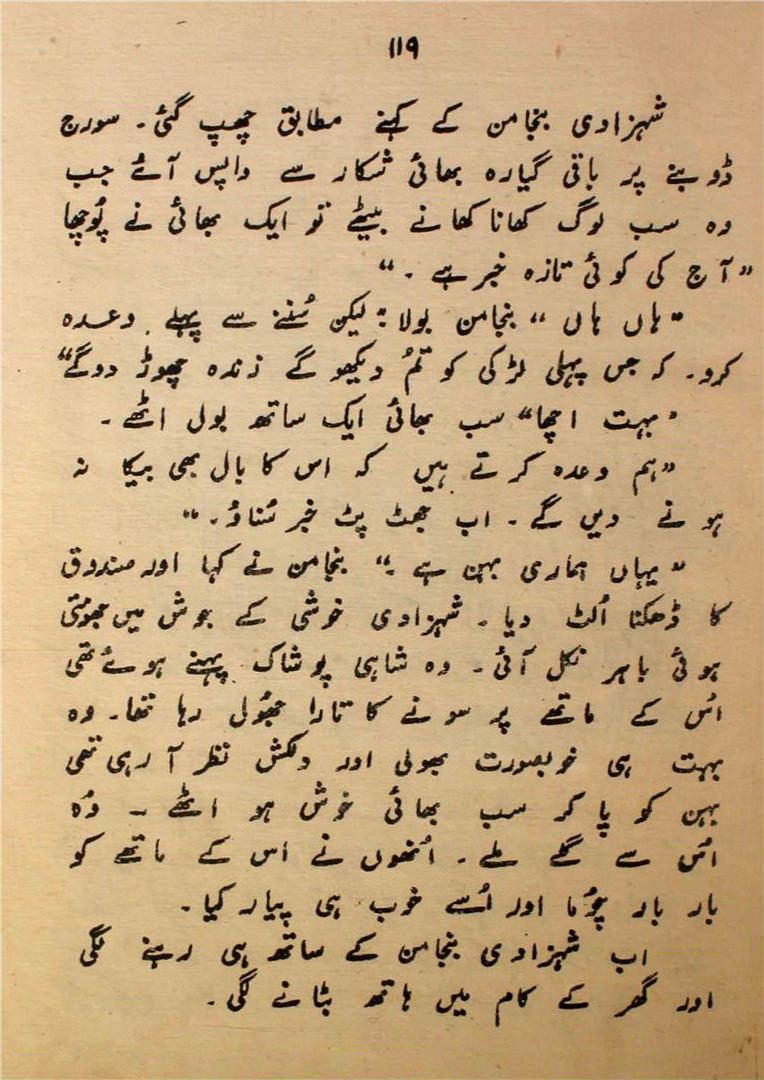 ۱۱۹
شہزادی بنجامن کے کہنے مطابق چھپ گئی۔ سورج
ڈوبنے پر باقی گیارہ بھائی شکار سے واپس آئے جب
وہ سب لوگ کھانا کھانے بیٹھے تو ایک بھائی نے پُوچھا
”آج کی کوئی تازہ خبر ہے۔“
”ہاں ہاں“ بنجامن بولا؛ لیکن سُننے سے پہلے وعدہ
کرو۔ کہ جس پہلی لڑکی کو تُم دیکھو گے زندہ چھوڑ دوگے“
”بہت اچھا“ سب بھائی ایک ساتھ بول اٹھے۔
”ہم وعدہ کرتے ہیں کہ اس کا بال بھی بیکا نہ
ہونے دیں گے۔ اب جھٹ پٹ خبر سُناؤ۔“
”یہاں ہماری بہن ہے۔“ بنجامن نے کہا اور صندوق
کا ڈھکنا اُلٹ دیا۔ شہزادی خوشی کے جوش میں جھومتی
ہوئی باہر نکل آئی۔ وہ شاہی پوشاک پہنے ہوئے تھی
اُس کے ماتھے پر سونے کا تارا جھُول رہا تھا۔ وہ
بہت ہی خوبصورت بھولی اور دلکش نظر آ رہی تھی
بہن کو پا کر سب بھائی خوش ہو اٹھے ۔ وُہ
اُس سے گلے ملے۔ اُنھوں نے اس کے ماتھے کو
بار بار چُوما اور اُسے خوب ہی پیار کیا۔
اب شہزادی بنجامن کے ساتھ ہی رہنے لگی
اور گھر کے کام میں ہاتھ بٹانے لگی۔